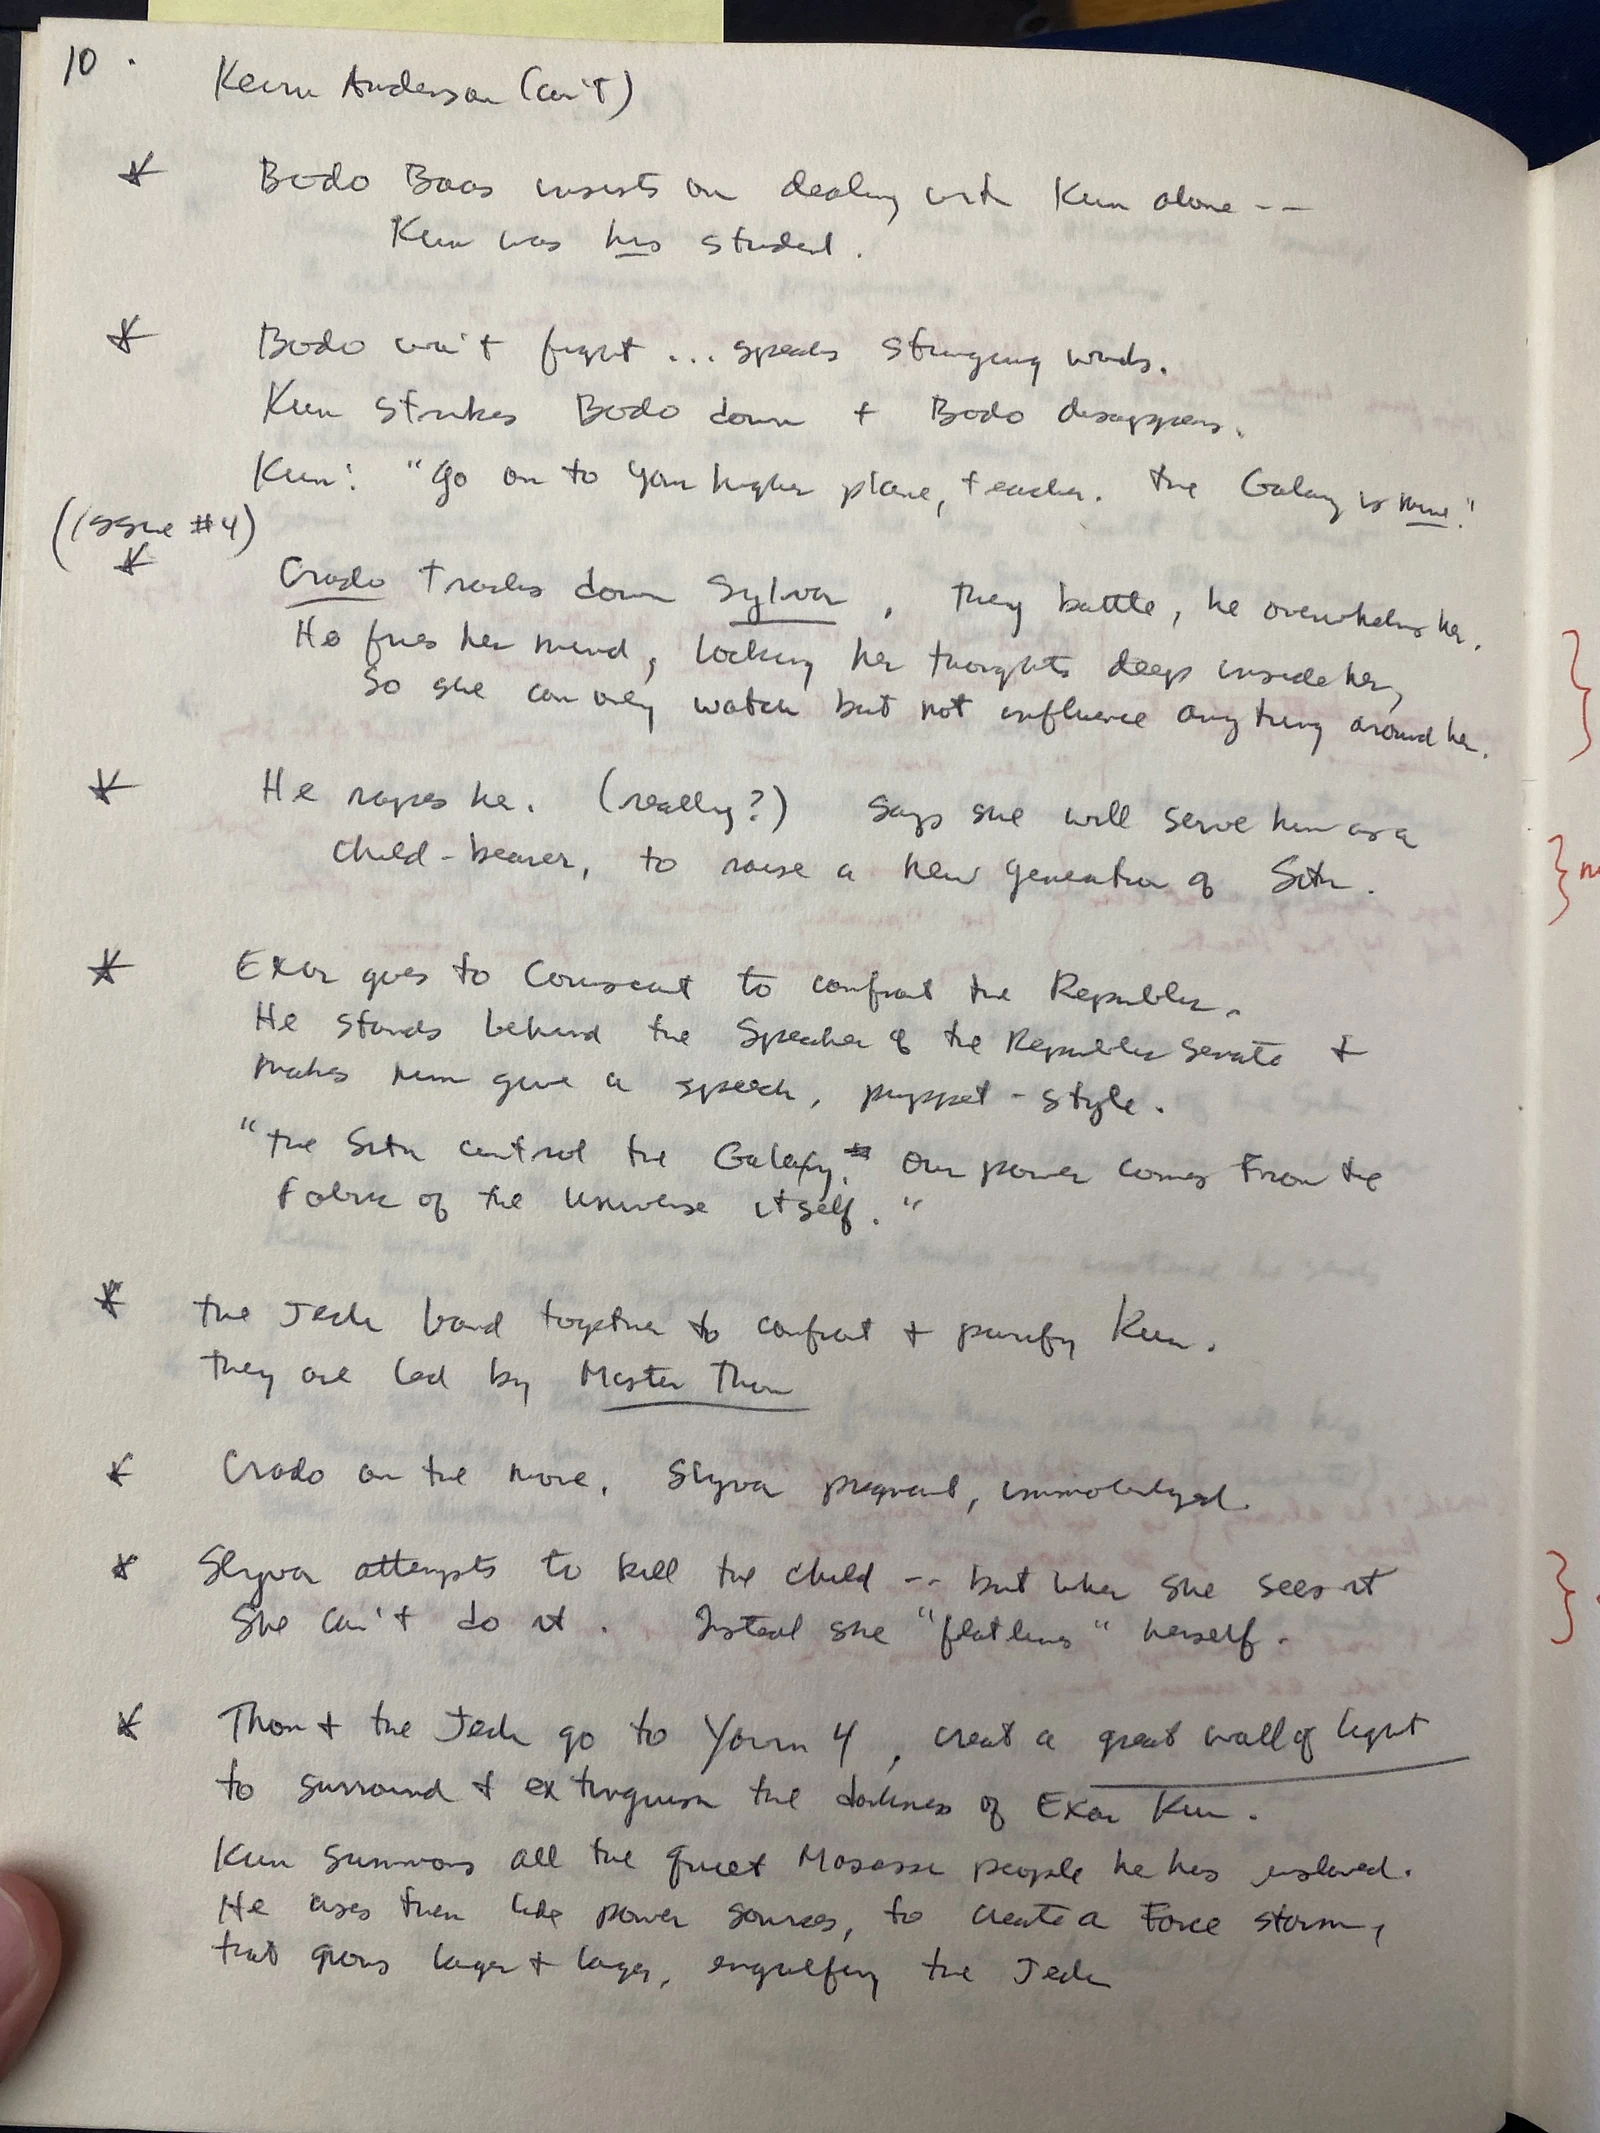 10.
Kevin Anderson (con't)
* Bodo Baas insists on dealing with Kun alone --
Kun was his student.
* Bodo won't fight ... speaks stinging words.
Kun strikes Bodo down + Bodo disappears.
Kun: "Go on to your higher plane, teacher. The Galaxy is mine."
(Issue #4)
* Crado tracks down Sylvar, they battle, he overwhelms her.
He fries her mind, locking her thoughts deep inside her,
so she can only watch but not influence anything around her.
* He rapes her. (really?) Says she will serve him as a
child-bearer, to raise a new generation of Sith.
* Exar goes to Coruscant to confront the Republic.
He stands behind the Speaker of the Republic Senate +
makes him give a speech, puppet-style.
"The Sith control the Galaxy. Our power comes from the
Fabric of the Universe itself."
* The Jedi band together to confront + purify Kun.
They are led by Master Thon
* Crado on the move. Slyva pregnant, immobilized.
* Slyva attempts to kill the child -- but when she sees it
she can't do it. Instead she "flatlines" herself.
* Thon + the Jedi go to Yavin 4, creat a great wall of light
to surround + extinguish the darkness of Exar Kun.
Kun summons all the quiet Masassi people he has enslaved.
He uses them like power sources, to create a Force storm,
that grows larger + larger, engulfing the Jedi